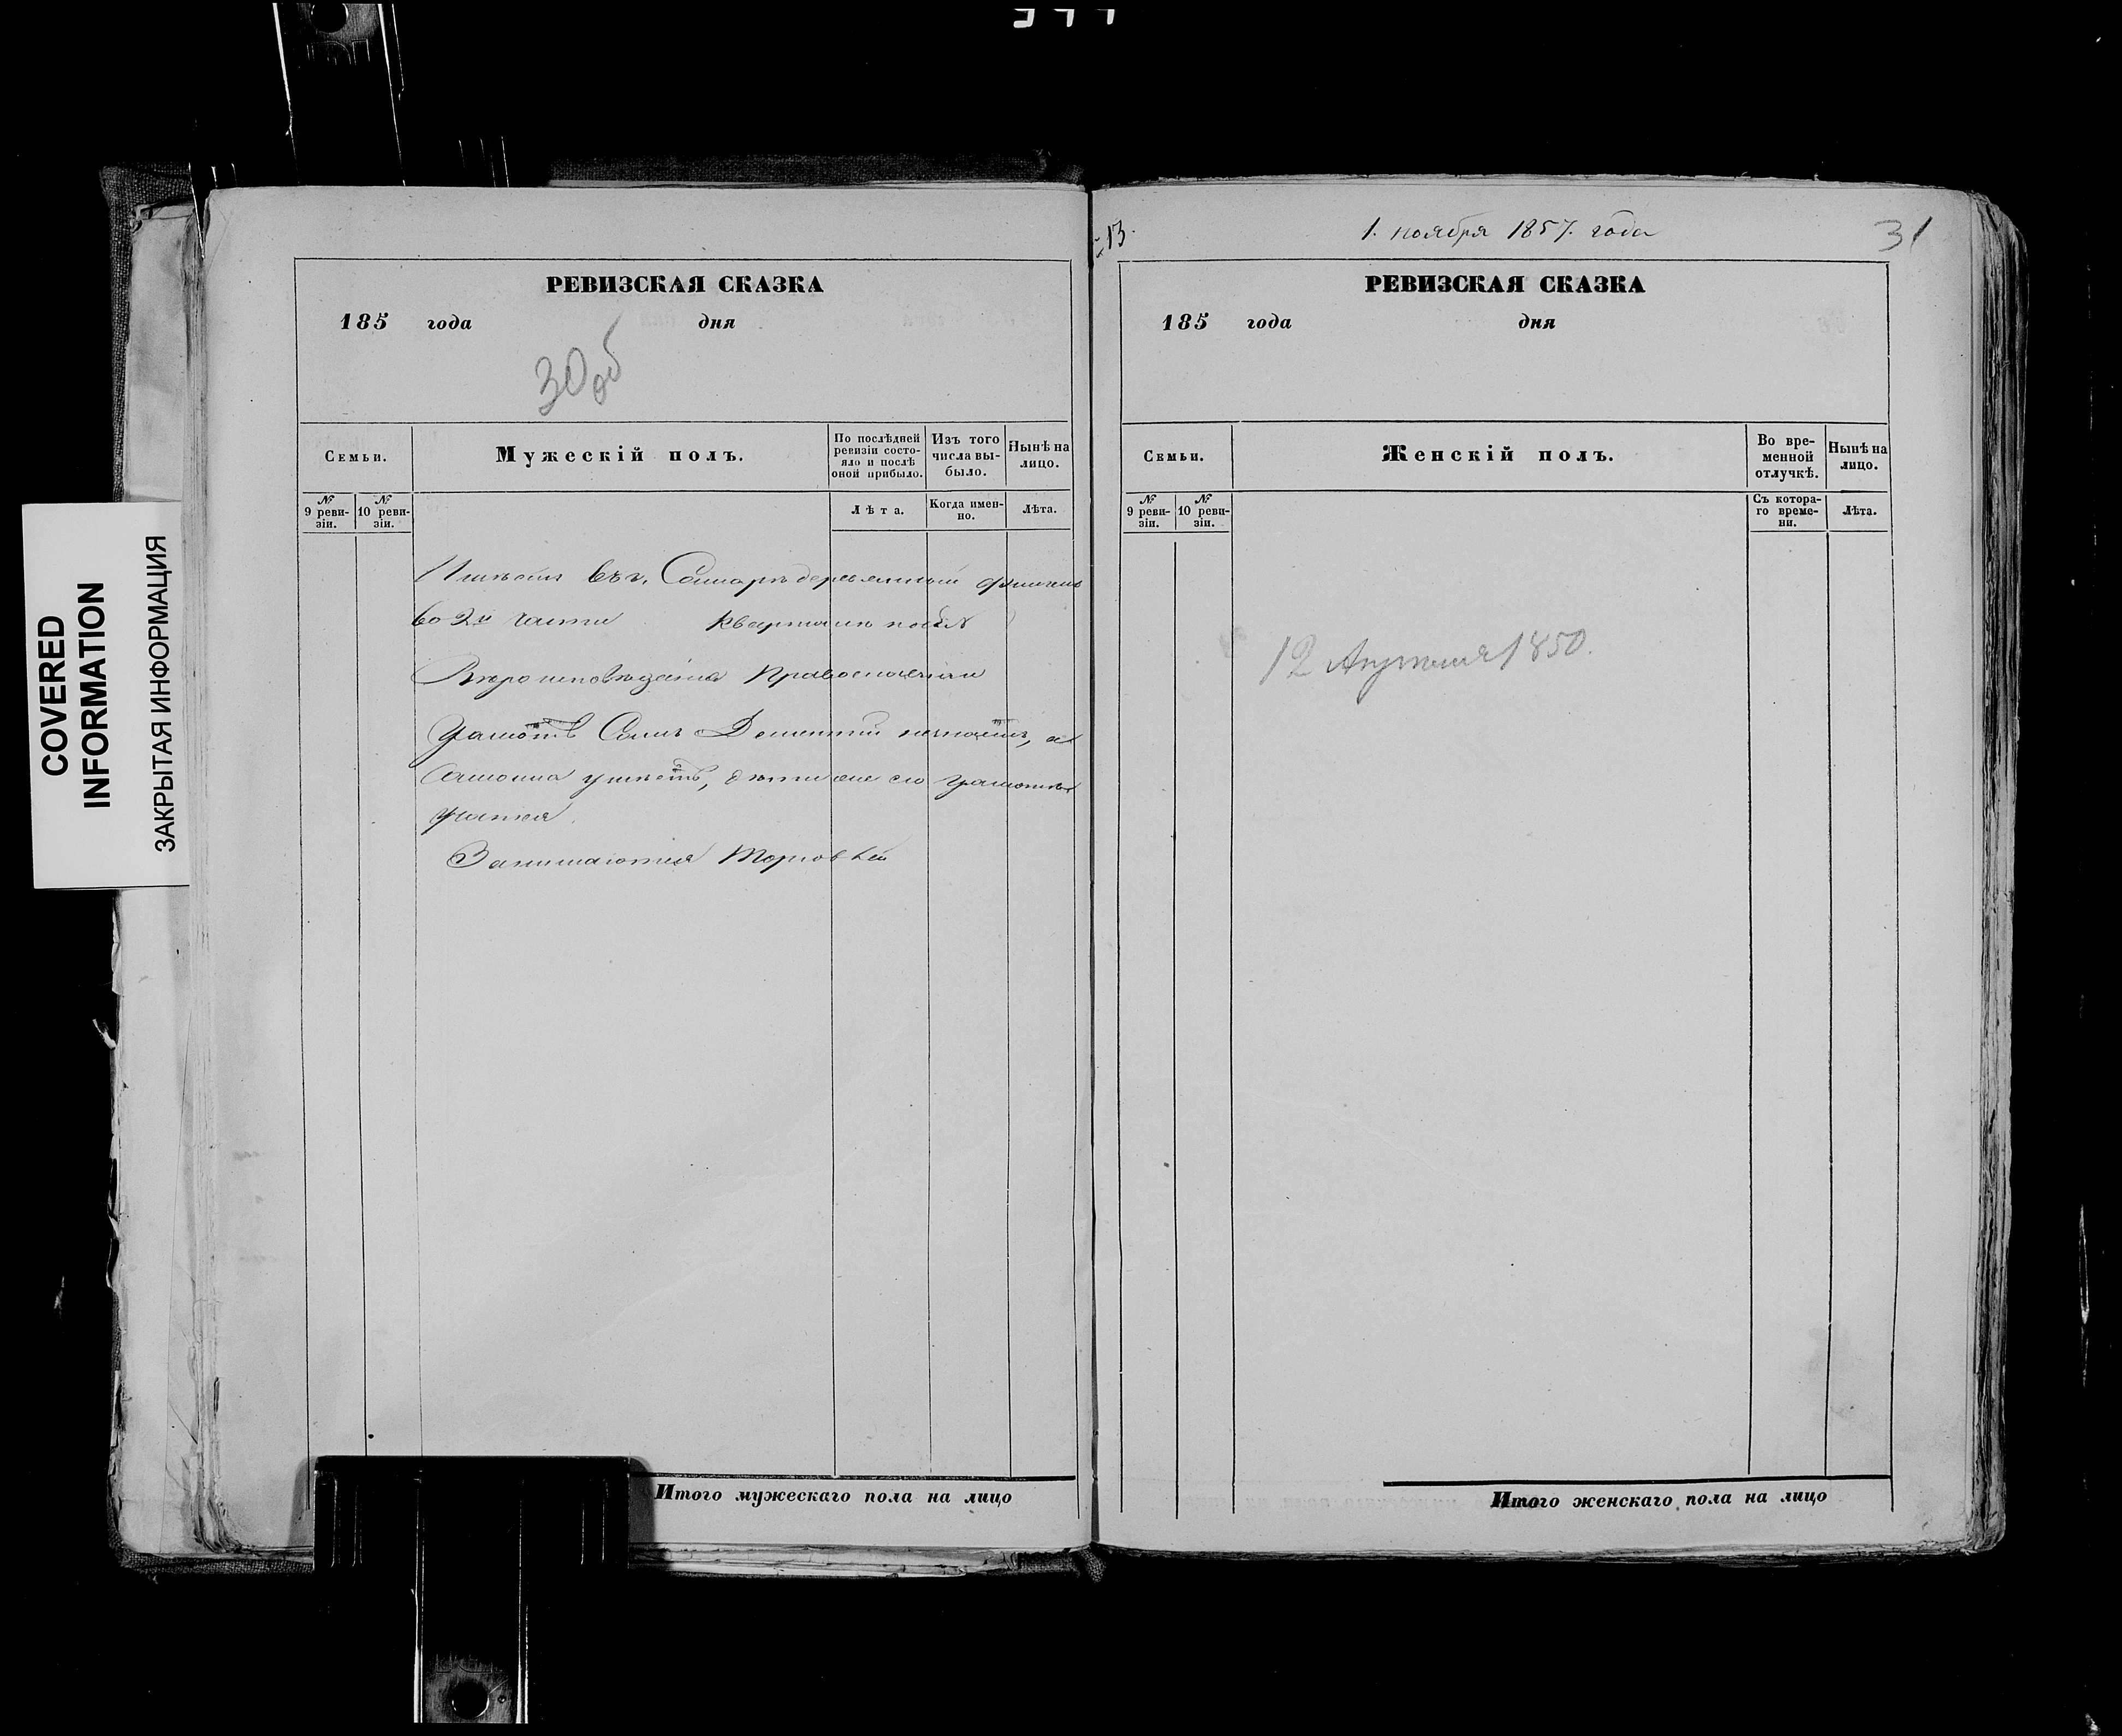 COVERED
INFORMATION
ЗАКРЫТАЯ ИНФОРМАЦИЯ
РЕВИЗСКАЯ СКАЗКА
185 года дня
30 об
Семьи.
Мужескій полъ.
По послѣдней ревизіи состояло и послѣ оной прибыло.
Изъ того числа выбыло.
Нынѣ на лицо.
№ 9 ревизіи.
№ 10 ревизіи.
Лѣта.
Когда именно.
Лѣта.
въ г. Самарѣ деревянный флигель
во 2й части кварталѣ
Вѣроисповѣданія Православнаго
Грамотѣ Самъ Дементій незнаетъ, а
умѣетъ, дѣти же его грамотѣ
учатся
Занимаются торговлей
Итого мужескаго пола на лицо
13.
1. ноября 1857. года
31
РЕВИЗСКАЯ СКАЗКА
185 года дня
Семьи.
Женскій полъ.
Во временной отлучкѣ.
Нынѣ на лицо.
№ 9 ревизіи.
№ 10 ревизіи.
Съ котораго времени.
Лѣта.
12 Апрѣля 1850.
Итого женскаго пола на лицо